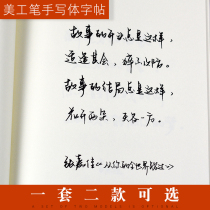 美工笔手写体字帖
故事的开头总是这样，
适逢其会，猝不及防。
故事的结局总是这样，
花开两朵，天各一方。
张嘉佳《从你的全世界路过》
一套二款可选